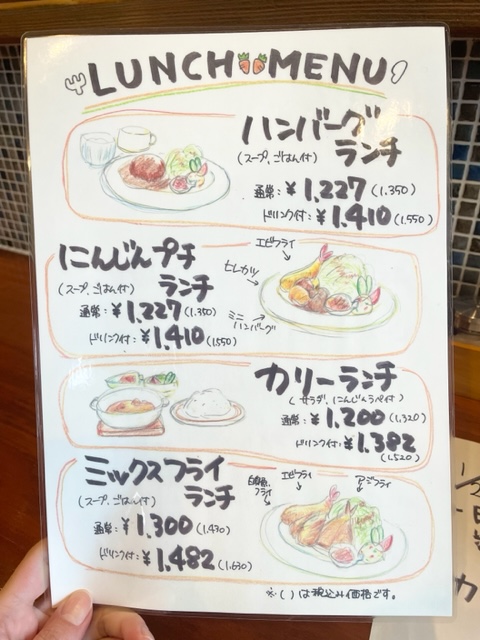 LUNCH MENU
ハンバーグ
ランチ
(スープ、ごはん付)
通常:¥1,227(1,350)
ドリンク付:¥1,410(1,550)
にんじんプチ
ランチ
(スープ、ごはん付)
通常:¥1,227(1,350)
ドリンク付:¥1,410(1,550)
エビフライ
ヒレカツ
ミニ
ハンバーグ
カリーランチ
(サラダ、にんじんラペ付)
通常:¥1,200(1,320)
ドリンク付:¥1,382
(1,520)
ミックスフライ
ランチ
(スープ、ごはん付)
通常:¥1,300(1,430)
ドリンク付:¥1,482(1,630)
白身魚
フライ
エビフライ
アジフライ
※( )は税込み価格です。